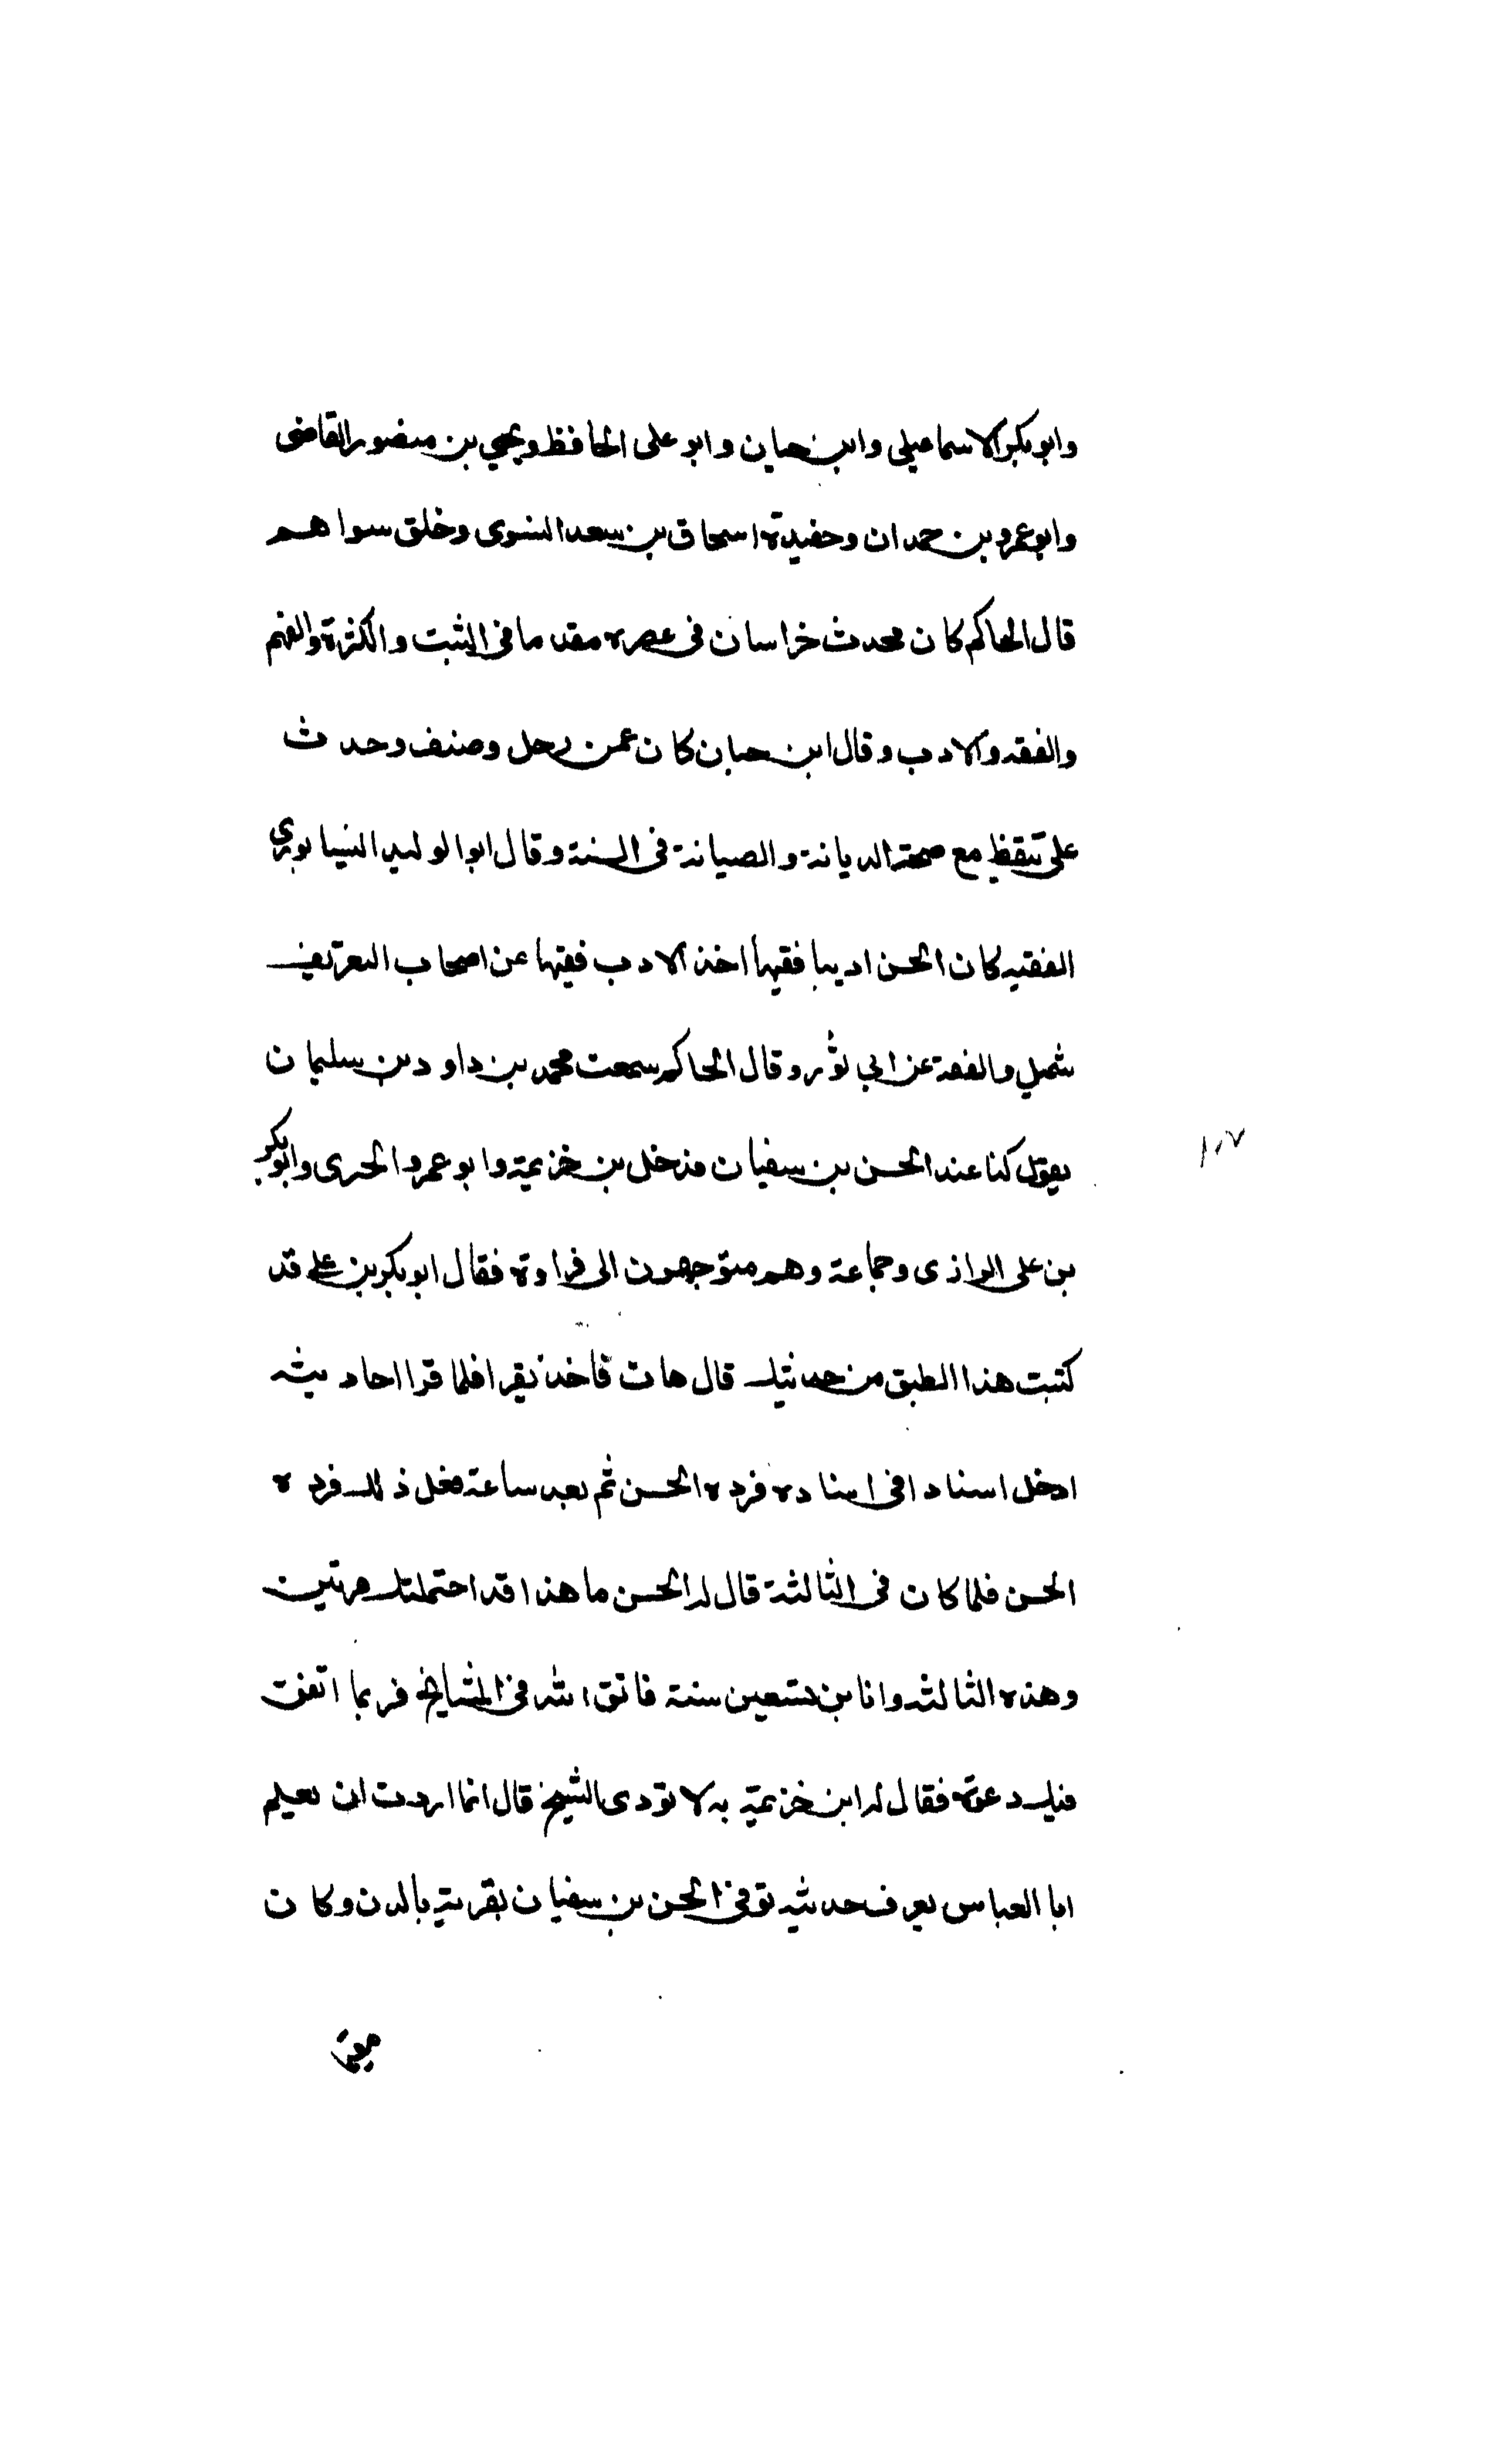 وابوبكر الاسماعيلى وابن حبان وابو على الحافظ ويحيي بن منصور القاضى
وابو عمرو بن حمدان وحفيدة اسحاق بن سعد النسوى وخلق سواهم
قال الحاكم كان محدث خراسان فى عصره مقدما فى الثبت والكثرة والفهم
والفقه والادب وقال ابن حبان كان عمن رحل وصنف وحدث
على تيقظ مع صحة الديانة والصيانة فى السنة وقال ابوالوليد النيسابوري
الفقيه كان الحسن اديبا فقيها اخذ الادب فقيها عن اصحاب التعريف
شميل والفقة عن ابي ثور وقال الحاكم سمعت محمد بن داود بن سليمان
يقول كنا عند الحسن بن سفيان فدخل بن خزيمة وابو عمرو الحرى وابوبكر
بن على الرازى وجماعة وهم متوجهون الى فراوة فقال ابوبكر بن على قد
كتبت هذا الطبق من حديثك قال هات فاخذ يقرا فلما قرا احاديث
ادخل اسنادا فى اسناده فرده الحسن ثم بعد ساعة فعل ذلك فرده
الحسن فلما كان فى الثالثة قال له الحسن ما هذا قد احتملتك مرتين
وهذه الثالثه وانا بن تسعين سنة فاتق الله فى المشايخ فربما اتفقت
فيك دعوة فقال له ابن خزيمة به لا تودى بالشيخ قال انما اردت ان تعلم
ابا العباس يعرف حديثه توفى الحسن بن سفيان بقرية بالدن وكان
١٠٧